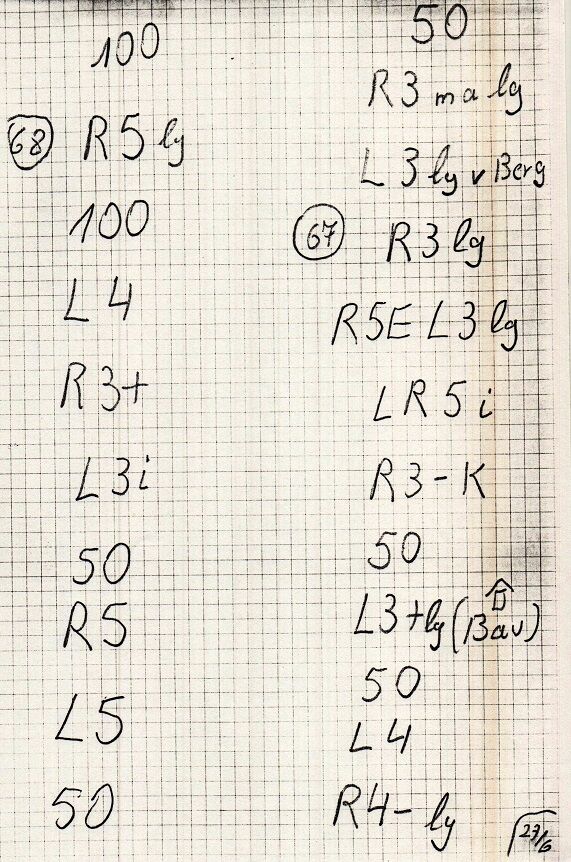 100
68 R5 lg
100
L4
R3+
L3i
50
R5
L5
50
50
R3 ma lg
L3 lg v Berg
67 R3 lg
R5E L3 lg
LR5i
R3-K
50
L3+lg (Bav)
50
L4
R4- lg
27/6